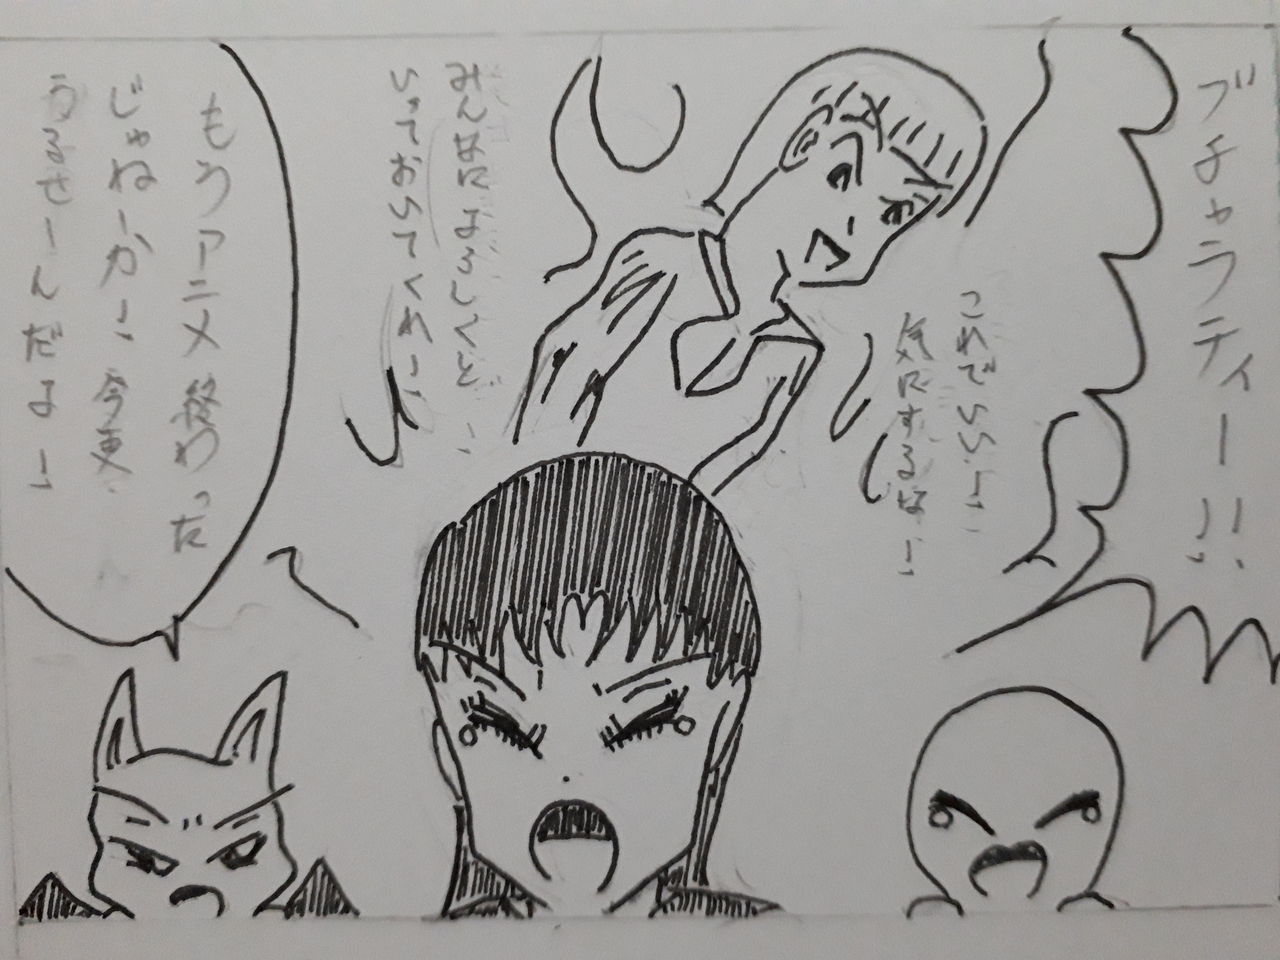 ブチャラティー!!
これでいい!
気にするな!
みんなによろしくと
いっておいてくれ!
もうアニメ終わった
じゃねーか!今更
うるせーんだよ!